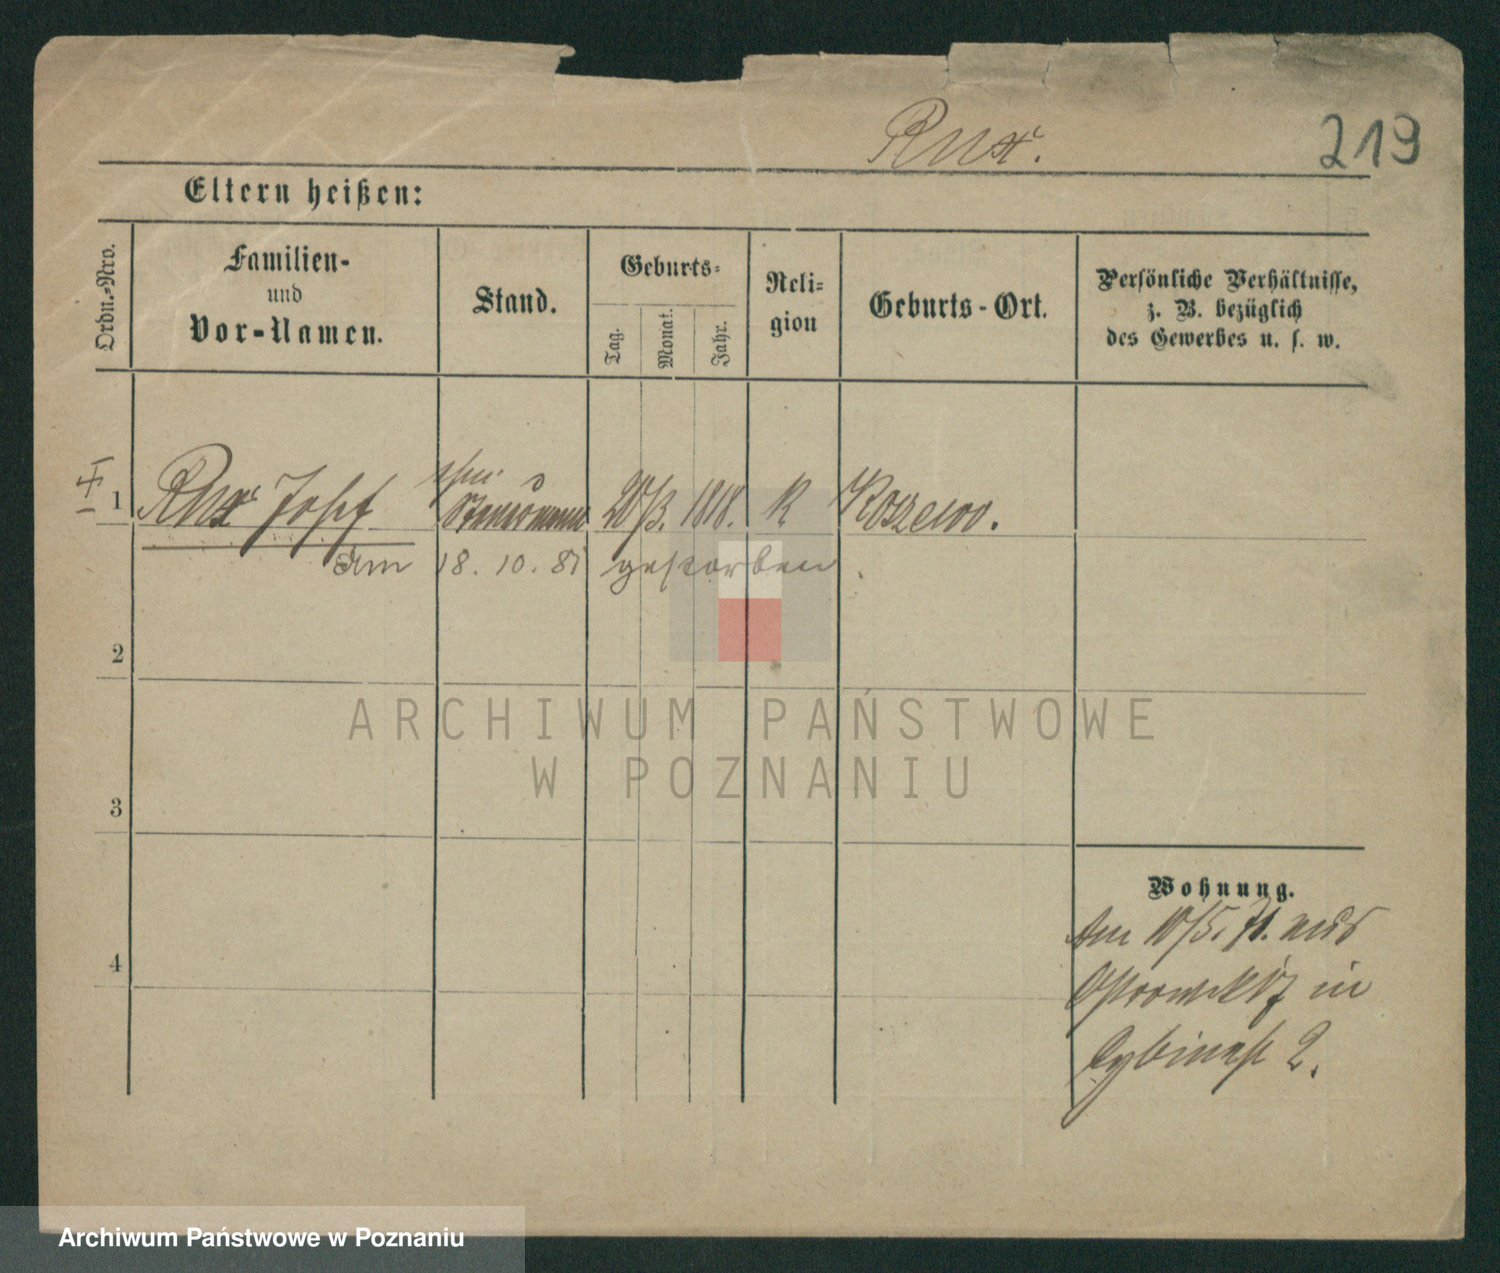 Rux.
219
Eltern heißen:
Ordn.-Nro.
Familien-
und
Vor-Namen.
Stand.
Geburts-
Tag.
Monat.
Jahr.
Reli-
gion
Geburts-Ort.
Persönliche Verhältnisse,
z. B. bezüglich
des Gewerbes u. s. w.
1
Rux Josef
20/3. 1818. K Koszewo.
am 18. 10. 81 gestorben.
2
ARCHIWUM PAŃSTWOWE
W POZNANIU
3
Wohnung.
Am 10/5. 71. aus
in
Cybinastr 2.
4
Archiwum Państwowe w Poznaniu